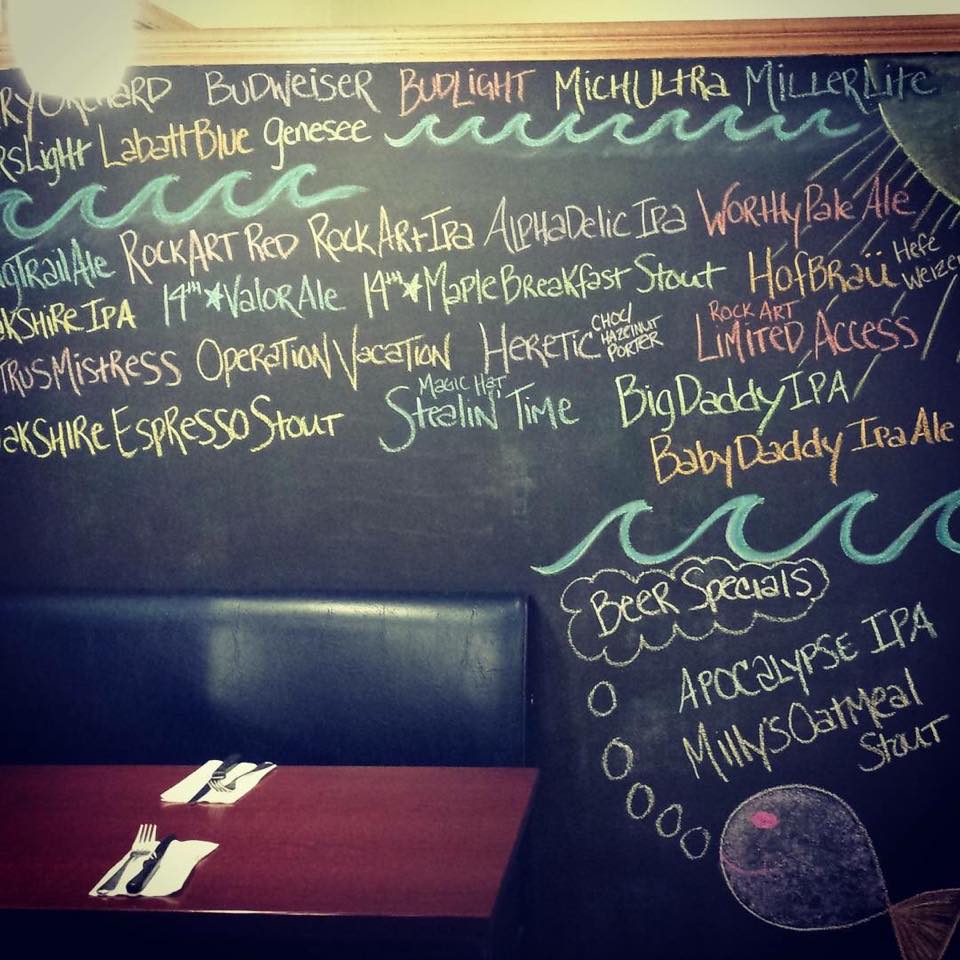 RYORCHARD BUDWEISER BUDLIGHT MICHULTRA MILLERLITE
RSLIGHT LABATTBLUE GENESEE
GTRAILALE ROCKART RED ROCKARTIPA ALPHADELIC IPA WORTHYPALE ALE
AKSHIRE IPA 14TH★VALORALE 14TH★MAPLEBREAKFAST STOUT HOFBRAÜ HEFE WEIZEN
TRUSMISTRESS OPERATION VACATION HERETIC CHOC/ HAZELNUT PORTER ROCK ART LIMITED ACCESS
AKSHIRE ESPRESSO STOUT MAGIC HAT STEALIN' TIME BIGDADDY IPA
BABYDADDY IPA ALE
BEER SPECIALS
APOCALYPSE IPA
MILLY'S OATMEAL
STOUT